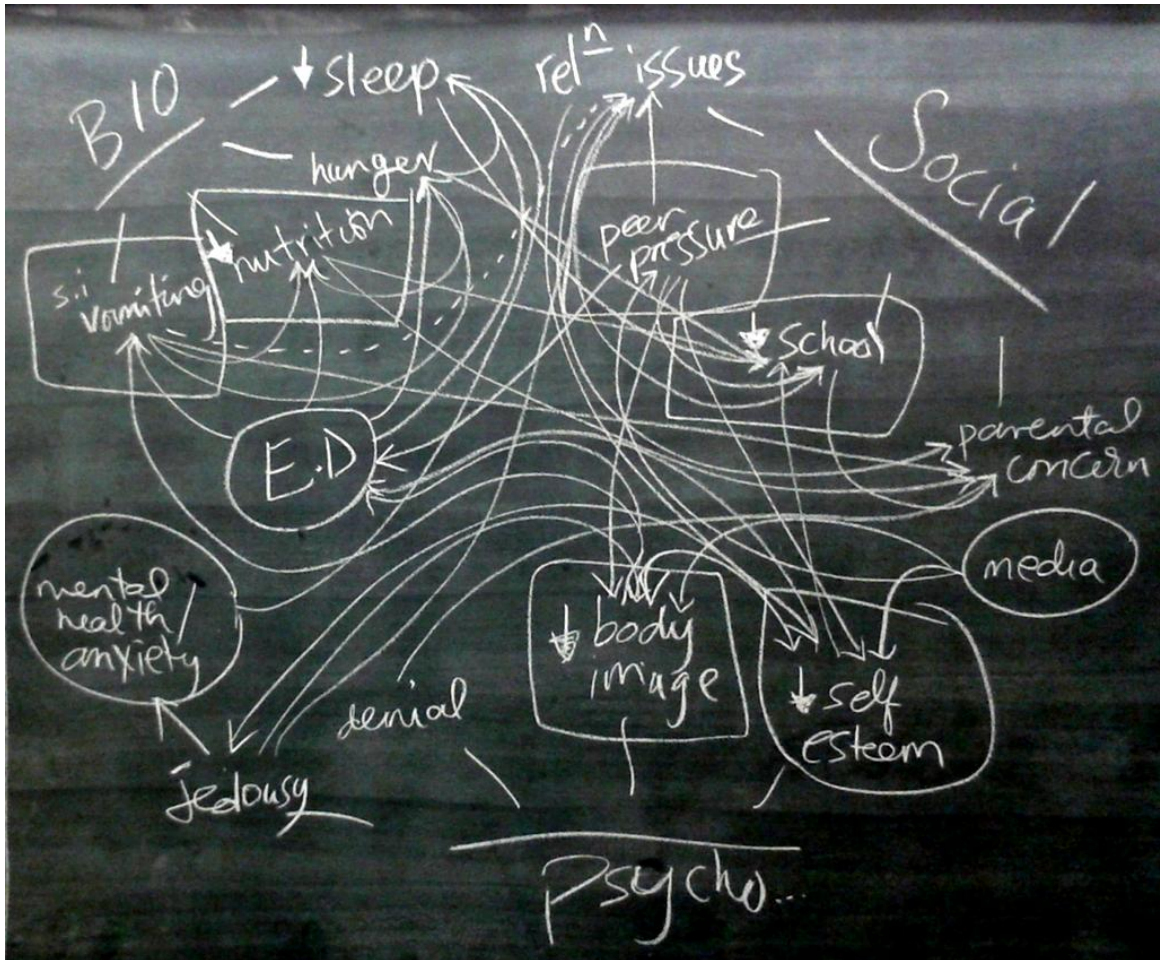 BIO
↓ sleep
relⁿ issues
Social
hunger
↓ nutrition
s.i
vomiting
peer
pressure
↓ school
E.D
parental
concern
media
mental
health/
anxiety
↓ body
image
↓ self
esteem
denial
jealousy
psycho...